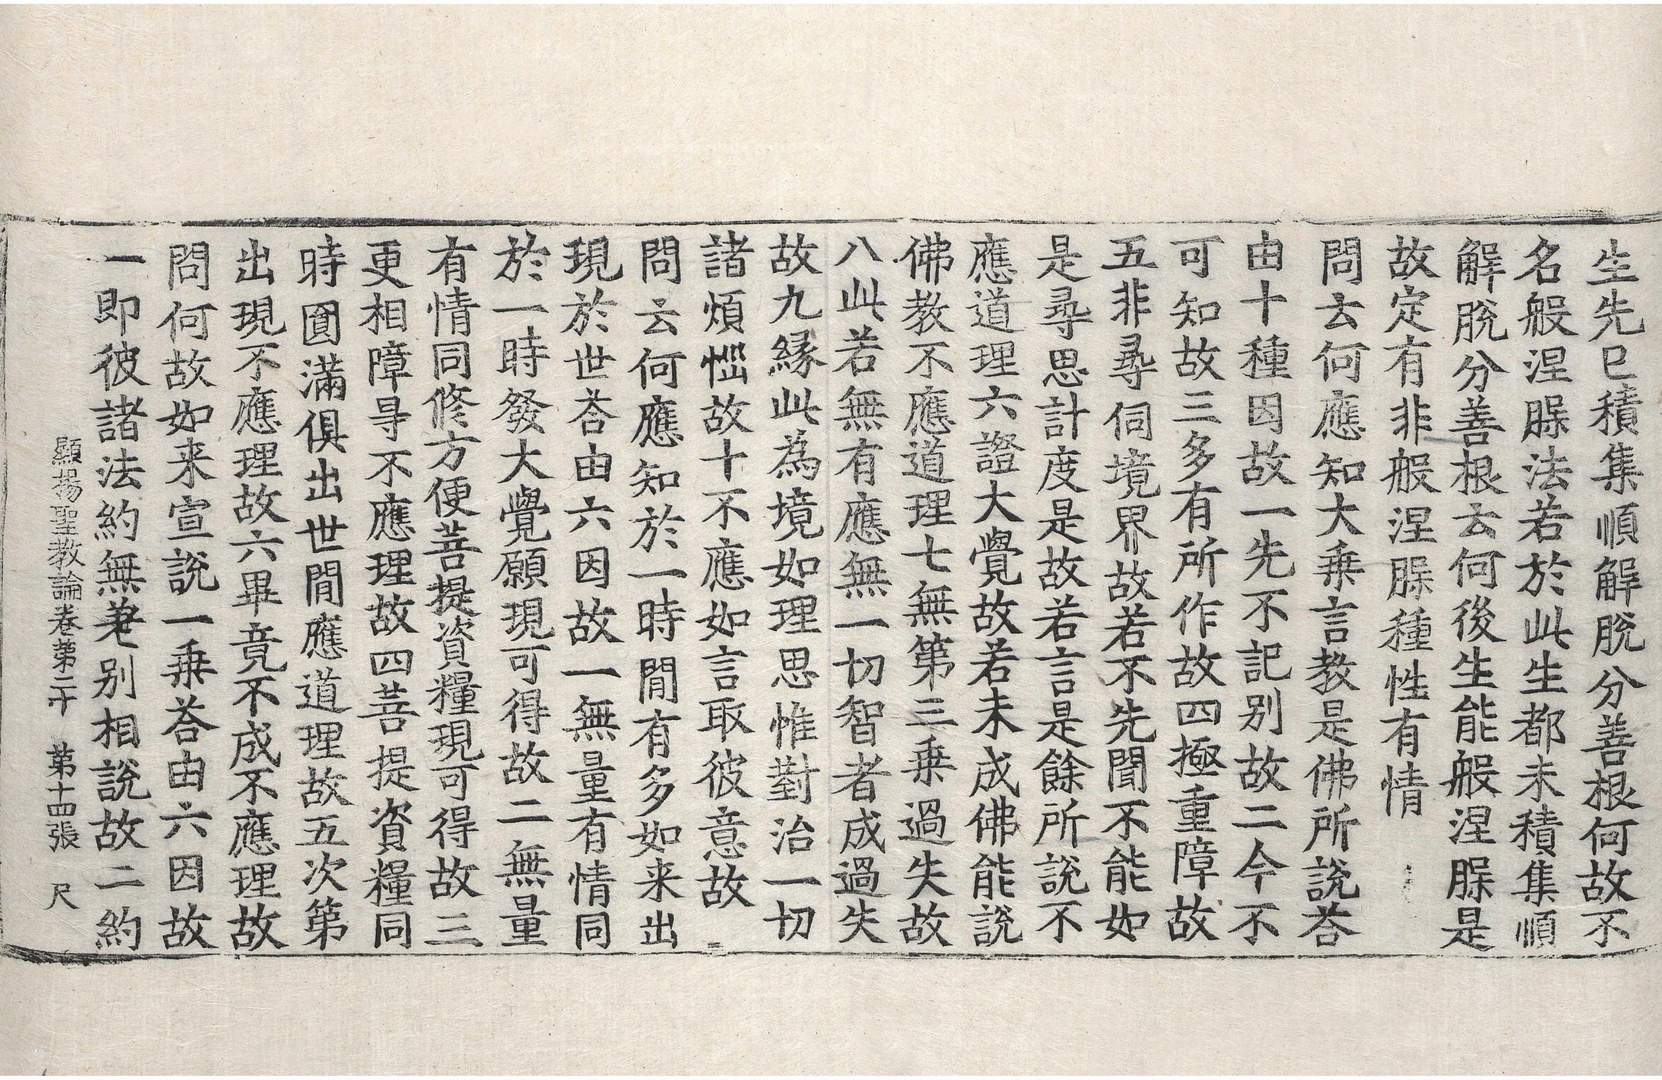 生先已積集順解脫分善根何故不
名般涅槃法若於此生都未積集順
解脫分善根云何後生能般涅槃是
故定有非般涅槃種性有情
問云何應知大乗言教是佛所說荅
由十種因故一先不記別故二今不
可知故三多有所作故四極重障故
五非尋伺境界故若不先聞不能如
是尋思計度是故若言是餘所說不
應道理六證大覺故若未成佛能說
佛教不應道理七無第三乗過失故
八此若無有應無一切智者成過失
故九緣此為境如理思惟對治一切
諸煩惱故十不應如言取彼意故
問云何應知於一時閒有多如来出
現於世荅由六因故一無量有情同
於一時發大覺願現可得故二無量
有情同修方便菩提資糧現可得故三
更相障㝵不應理故四菩提資糧同
時圓滿俱出世閒應道理故五次第
出現不應理故六畢竟不成不應理故
問何故如来宣說一乗荅由六因故
一即彼諸法約無差別相說故二約
顯揚聖教論卷第二十 第十四張 尺